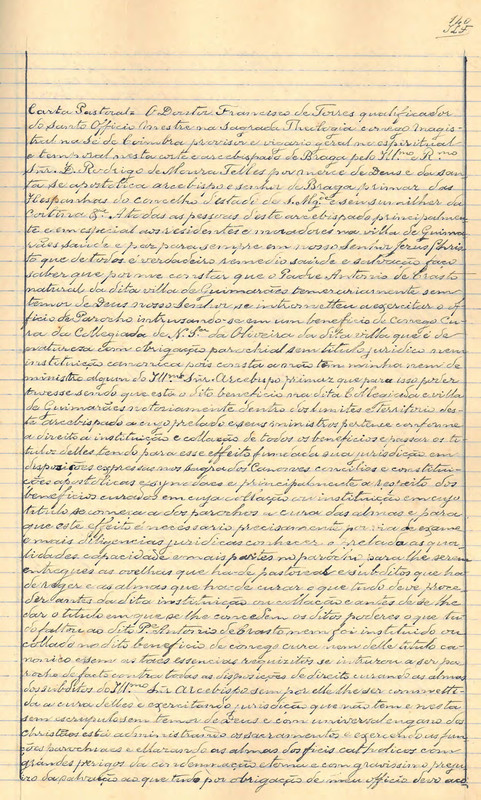 140
Carta Pastoral = O Doutor Francisco de Torres qualificador
do Santo Officio mestre na Sagrada Theologia conego magis-
tral na Sé de Coimbra provisor e vigario geral no espiritual
e temporal nesta corte e arcebispado de Braga pelo Ill.mo R.mo
Snr. D. Rodrigo de Moura Telles por mercê de Deus e da san-
ta Sé apostolica arcebispo e senhor de Braga primaz das
Hespanhas do conselho d'estado de S. Mg.de e seu sumilher da
Cortina &.ª A todas as pessoas d'este arcebispado principalmen-
te e em especial aos residentes e moradores na villa de Guima-
rães saude e paz para sempre em nosso Senhor Jezus Christo
que de todos é verdadeiro remedio saude e salvação faço
saber que por me constar que o Padre Antonio de Crasto
natural da dita villa de Guimarães temerariamente sem
temor de Deus nosso Senhor se intrometteu a exercitar o of-
ficio de Parocho intrusando-se em um beneficio de Conego Cu-
ra da Collegiada de N. Sr.ª da Oliveira da dita villa que é de
natureza com obrigação parochial sem titulo juridico nem
instituição canonica pois consta a não tem minha nem de
ministro algum do Ill.mo Snr. Arcebispo primaz que para isso poder
tivesse sendo que está o dito beneficio na dita Collegiada e villa
de Guimarães notoriamente dentro dos limites e territorio des-
te arcebispado a cujo prelado e seus ministros pertence conforme
a direito a instituição e collação de todos os beneficios e passar os ti-
tulos delles tendo para esse effeito fundada sua jurisdição em
disposições expressas nos Sagrados Canones concilios e constitui-
ções apostolicas e synodaes e principalmente a respeito dos
beneficios curados em cuja collação ou instituição em cujo
titulo se comera a dos parochos a cura das almas e para
que este effeito é necessario precisamente por via de exame
e mais diligencias juridicas conhecer o prelado as qua-
lidades capacidade e mais partes no parocho para lhe serem
entregues as ovelhas que ha de pastorear e subditos que ha
de reger e as almas que ha de curar o que tudo deve proce-
der antes da dita instituição ou collação e antes de se lhe
dar o titulo em que se lhe concedem os ditos poderes o que tu-
do faltou ao dito P. Antonio de Crasto nem foi instituido ou
collado no dito beneficio de conego cura nem delle titulo ca-
nonico e sem as taes essencias requizitos se intrusou a ser pa-
rocho de facto contra todas as disposições de direito curando as almas
dos subditos do Ill.mo Snr. Arcebispo sem por elle lhe ser commetti-
da a cura delles e exercitando jurisdição que não tem e nesta
sem escrupulo sem temor de Deus e com universal engano dos
christãos está administrando os sacramentos e exercendo as fun-
ções parochiaes e illaçando as almas dos fieis catholicos com
grandes perigos da condemnação eterna e com gravissimo prejui-
zo da salvação ao que tudo por obrigação de meu officio devo aco-